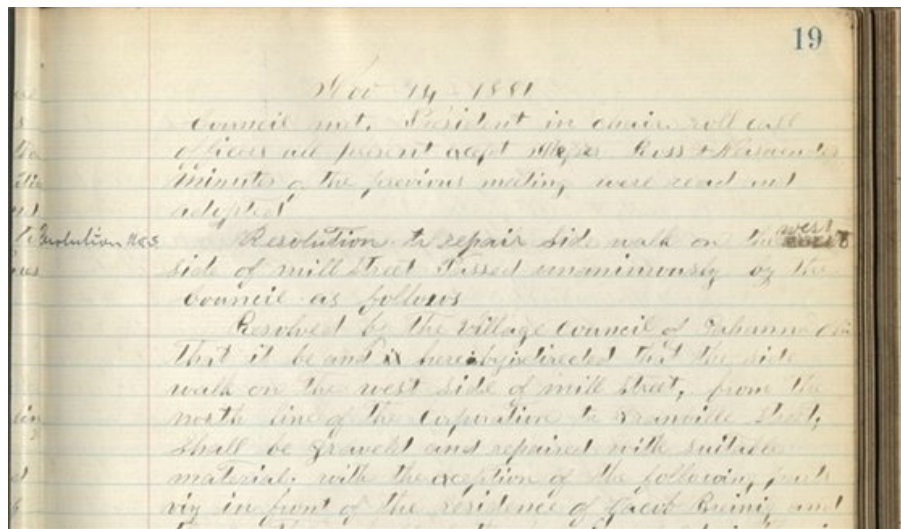 19
Nov 14 1881
Council met. President in chair. roll call
officers all present except Ross &
Minutes of the previous meeting were read and
adopted
Resolution No 3
Resolution to repair Side walk on the west
side of mill Street Passed unanimously by the
Council as follows
Resolved by the Village Council of Gahanna
that it be and is hereby directed that the side
walk on the west side of mill Street, from the
north line of the Corporation to Granville Street,
Shall be Gravelt and repaired with suitable
material. with the exception of the following parts
viz in front of the residence of Jacob Breinig and